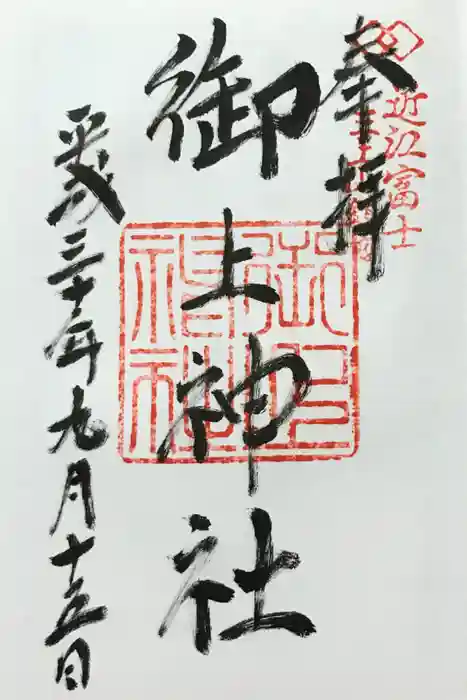 近江富士
奉拝
御上神社
平成三十年九月十五日
御上神社